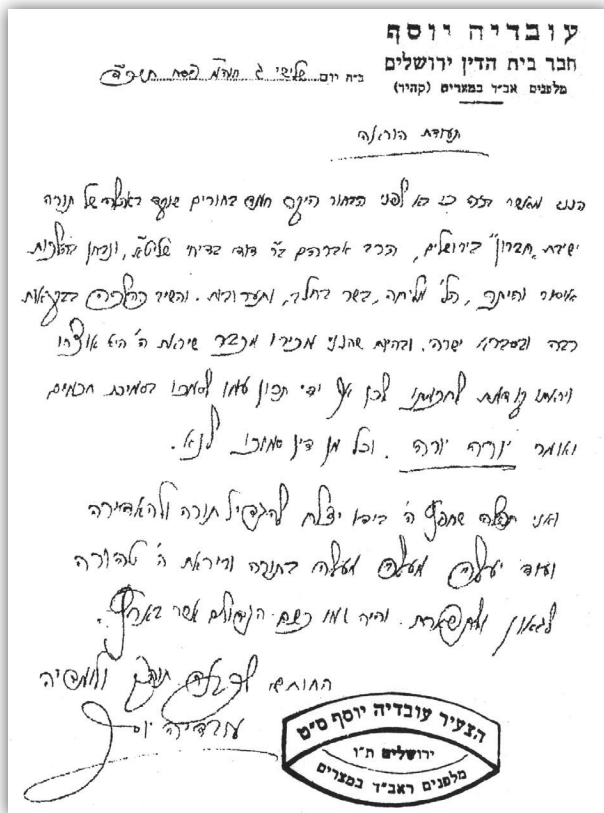 עובדיה יוסף
חבר בית הדין ירושלים
מלפנים אב"ד במצרים (קהיר)
ב"ה יום שלישי ג חוה"מ פסח
תעודת הוראה
הנני מאשר בזה כי בא לפני הבחור היקר חמד בחורים שוקד באהלה של תורה
ישיבת "חברון" בירושלים, הרב אברהם ב"ר דוד שליט"א, ונבחן בהלכות
איסור והיתר, הל' מליחה, בשר בחלב, ותערובות. והשיב כהלכה בבקיאות
רבה ובסברא ישרה. ובהיות שהנני מכירו מכבר שיראת ה' היא אוצרו
ויראתו קודמת לחכמתו לכן אף ידי תכון עמו לסמכו בסמיכת חכמים
ואומר יורה יורה. וכל מן דין סמוכו לנא.
ואני תפלה שחפץ ה' בידו יצלח להגדיל תורה ולהאדירה
ועוד יעלה מעלה מעלה בתורה ויראת ה' טהורה
לגאון ולתפארת. והיה שמו כשם הגדולים אשר בארץ.
החותם לכבוד התורה ולומדיה
עובדיה יוסף
הצעיר עובדיה יוסף ס"ט
ירושלים ת"ו
מלפנים ראב"ד במצרים